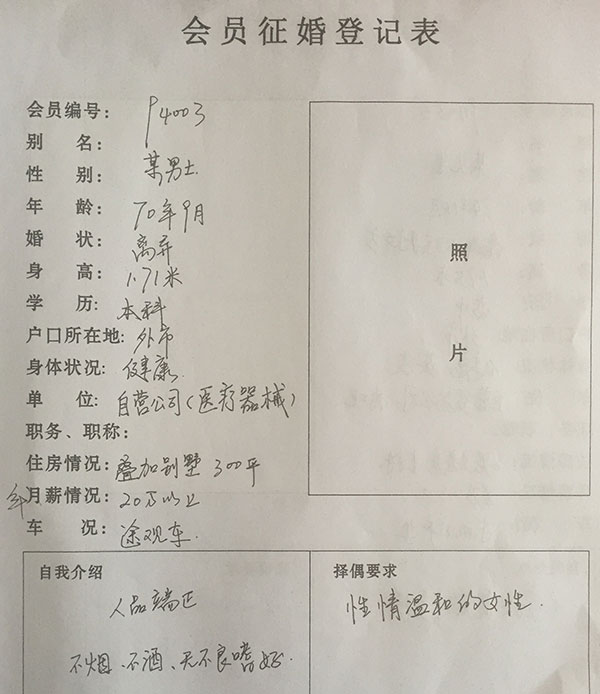 会员征婚登记表
会员编号: P4003
别 名:
性 别: 某男士
年 龄: 70年9月
婚 状: 离异
身 高: 1.71米
学 历: 本科
户口所在地: 外市
身体状况: 健康
单 位: 自营公司(医疗器械)
职务、职称:
住房情况: 叠加别墅 300平
年月薪情况: 20万以上
车 况: 途观车.
照
片
自我介绍
人品端正
不烟、不酒、无不良嗜好.
择偶要求
性情温和的女性.